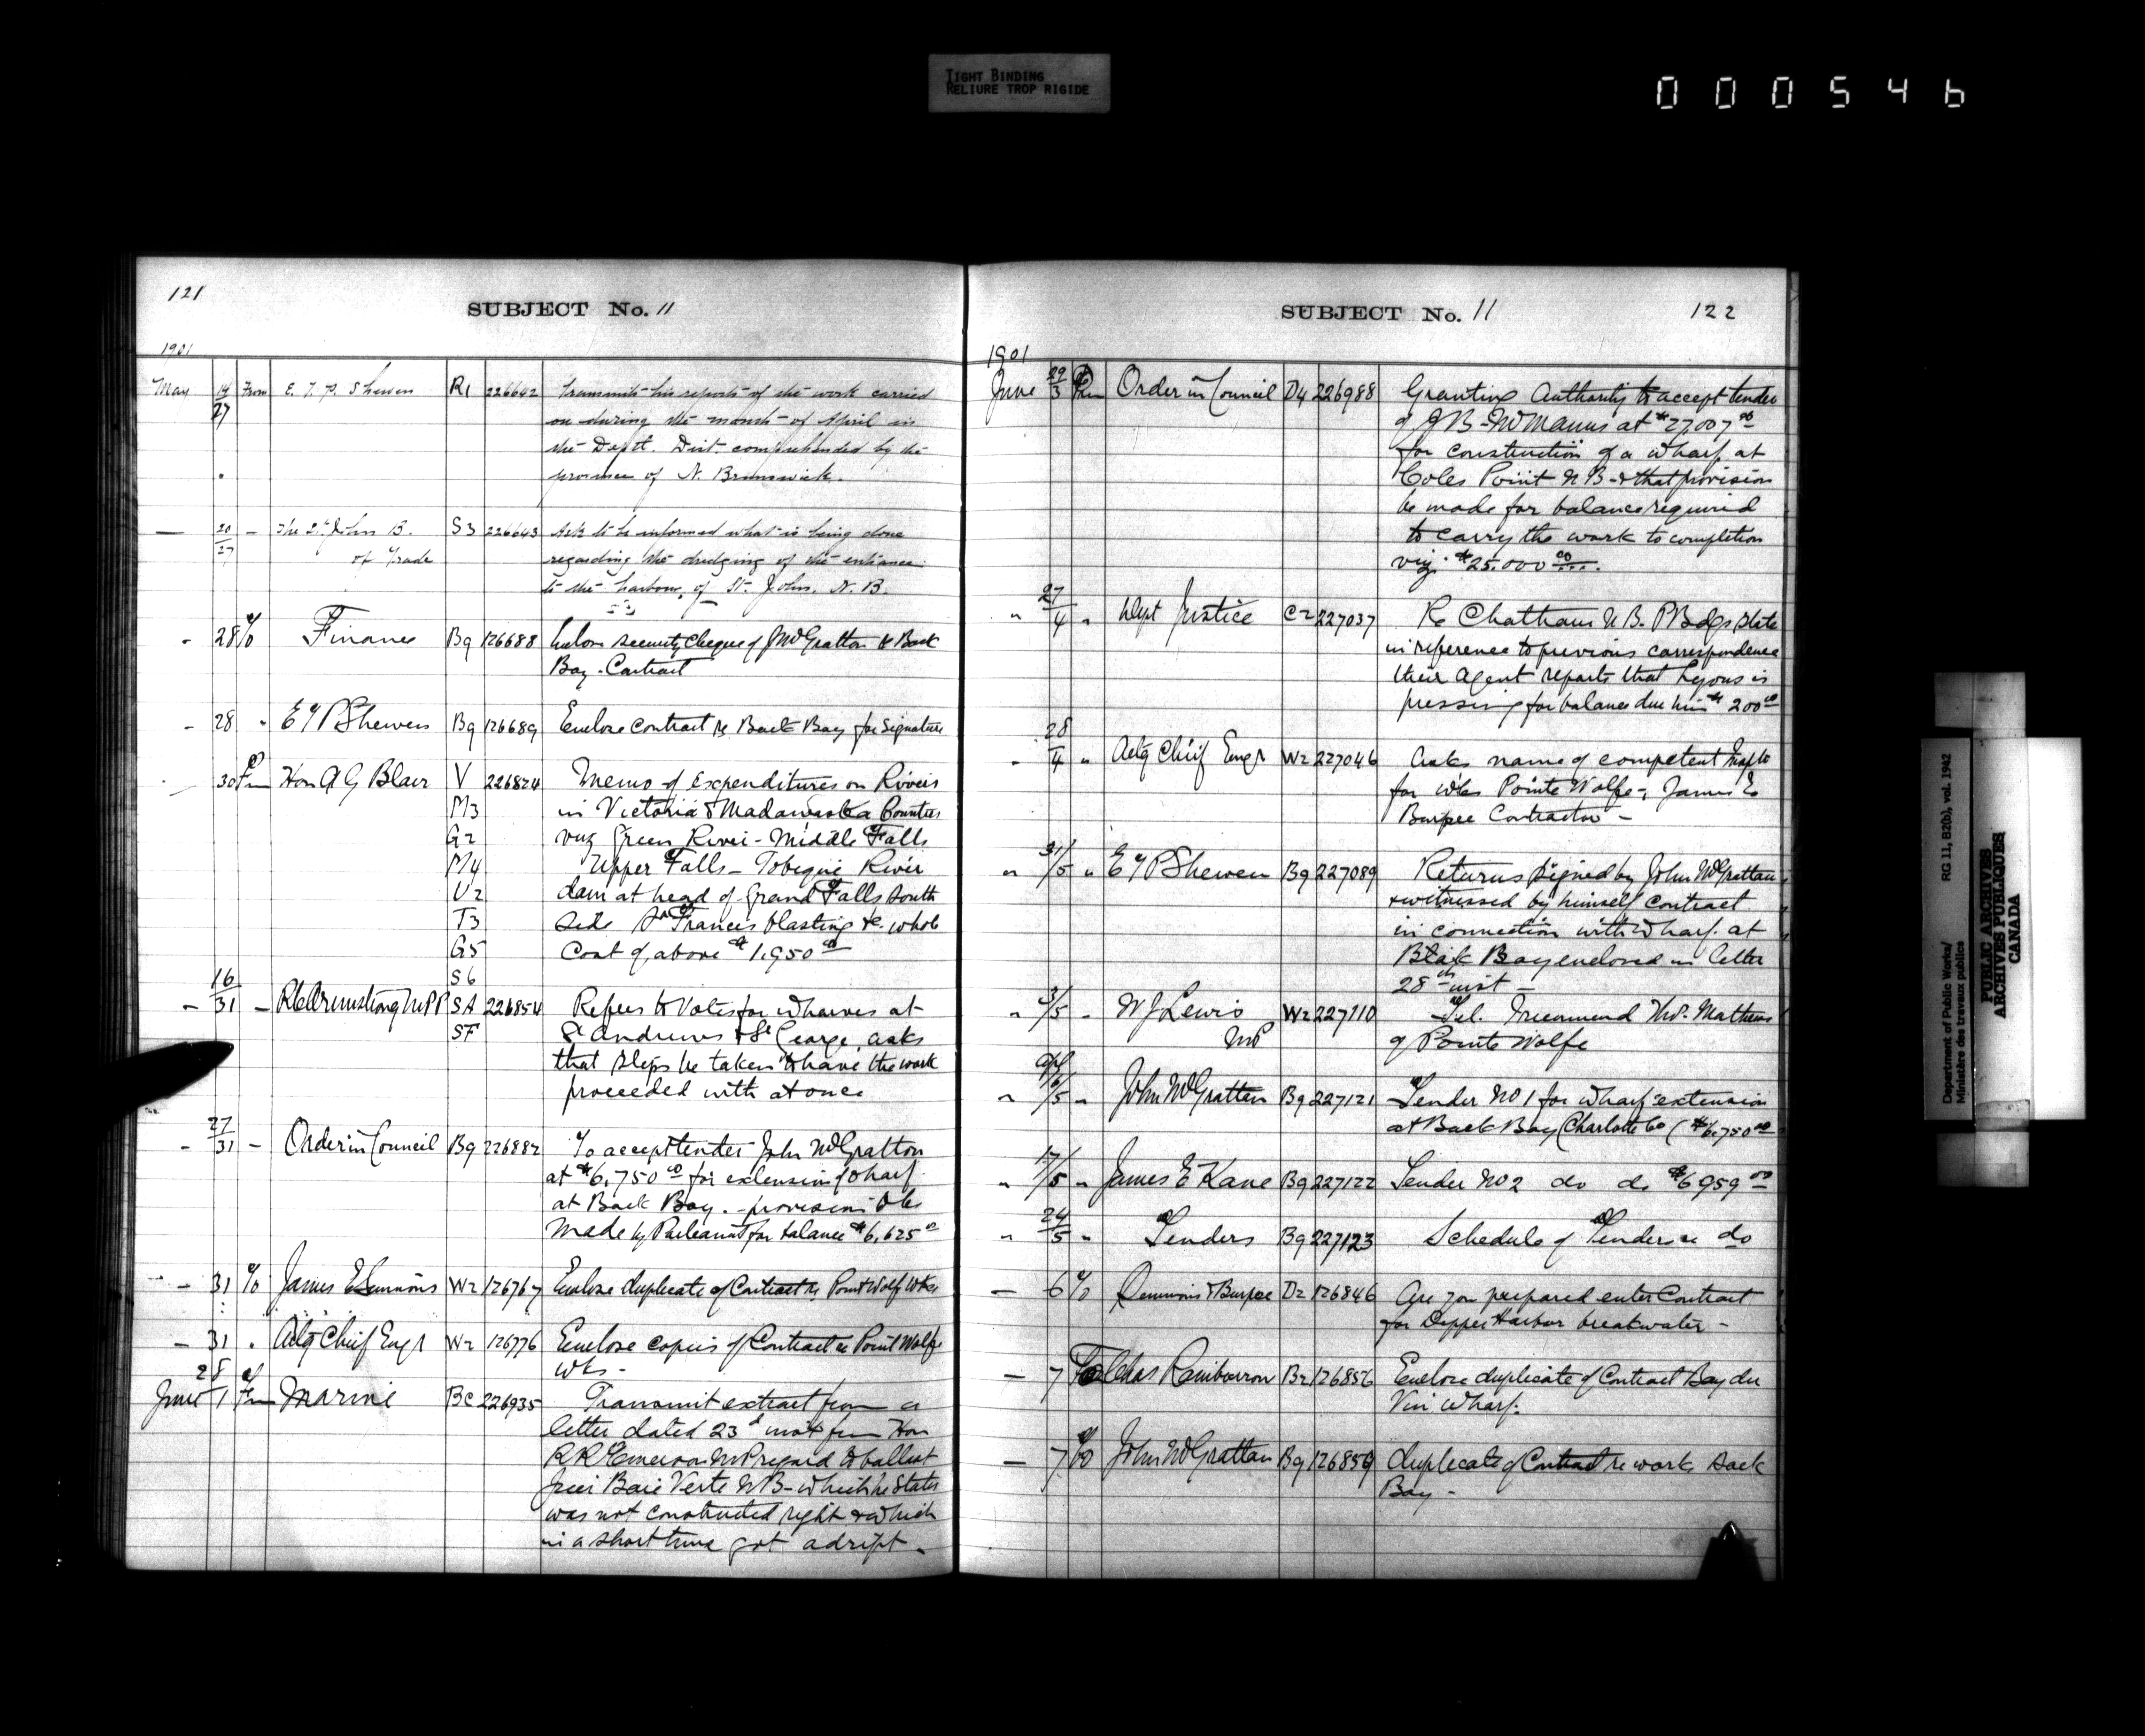 TIGHT BINDING
RELIURE TROP RIGIDE
000546
121
SUBJECT No. 11
1901
May 14/27 From E. T. P. Shewen R1 226642 Transmits his reports of the work carried
on during the month of April in
the Dept. Dist. comprehended by the
province of N. Brunswick.
— 20/27 – The St. John B. S3 226643 Ask to be informed what is being done
of Trade regarding the dredging of the entrance
to the harbour of St. John. N. B.
- 28 To Finance B9 126688 Enclose security Cheque of J McGratton re Back
Bay - Contract
- 28 " E T P Shewen B9 126689 Enclose Contract re Back Bay for Signature
30 Fm Hon A G Blair V 226824 Memo of expenditures on Rivers
M3 in Victoria & Madawaska Counties
G2 viz Green River - Middle Falls
M4 Upper Falls - Tobique River
V2 dam at head of Grand Falls south
T3 side St Francis blasting &c. whole
G5 Cost of above $1,950 00
S6
- 16/31 – R E Armstrong MPP SA 226854 Refers to Votes for wharves at
SF St Andrews & St George, asks
that steps be taken to have the work
proceeded with at once
- 27/31 – Order in Council B9 226882 To accept tender John McGratton
at $6,750 00 for extension of wharf
at Back Bay. - provision to be
made by Parliament for balance $6,625 00
- 31 To James E Simmons W2 126767 Enclose duplicate of Contract re Point Wolfe Wks
- 31 " Actg Chief Engr W2 126776 Enclose copies of Contract re Point Wolfe
Wks -
June 28/1 Fm Marine BC 226935 Transmit extract from a
letter dated 23d inst from Hon
R Emerson MP regard to ballast
Baie Verte NB - which he states
was not constructed right & which
in a short time got adrift -
SUBJECT No. 11
122
1901
June 29/3 Fm Order in Council D4 226988 Granting Authority to accept tender
of J B McManus at $27,007 00
for construction of a wharf at
Coles Point N B - & that provision
be made for balance required
to carry the work to completion
viz. $25.000 00.
" 27/4 " Dept Justice C2 227037 Re Chatham N B. P Bdgs state
in reference to previous correspondence
their Agent reports that Lyons is
pressing for balance due him $200 00
- 28/4 " Actg Chief Engr W2 227046 Asks name of competent Insptr
for wks Pointe Wolfe -, James E
Burpee Contractor -
" 31/5 " E T P Shewen B9 227089 Returns signed by John McGrattan
& witnessed by himself contract
in connection with wharf at
Back Bay enclosed in letter
28th inst -
" 3/5 - W J Lewis W2 227110 Tel. Recommend Mathews
MP of Pointe Wolfe
" Apl 16/5 " John McGrattan B9 227121 Tender No 1 for wharf extension
at Back Bay Charlotte Co ($6,750 00
" 17/5 " James E Kane B9 227122 Tender No 2 do do $6959 00
" 24/5 " Tenders B9 227123 Schedule of Tenders re do
— 6 To Simmons & Burpee D2 126846 Are you prepared enter Contract
for Dipper Harbor breakwater -
— 7 To Chas Rainbourron B2 126856 Enclose duplicate of Contract Bay du
Vin Wharf.
— 7 To John McGrattan B9 126859 duplicate of Contract re work Back
Bay -
Department of Public Works/
Ministère des travaux publics
RG 11, B2(b), vol. 1942
PUBLIC ARCHIVES
ARCHIVES PUBLIQUES
CANADA